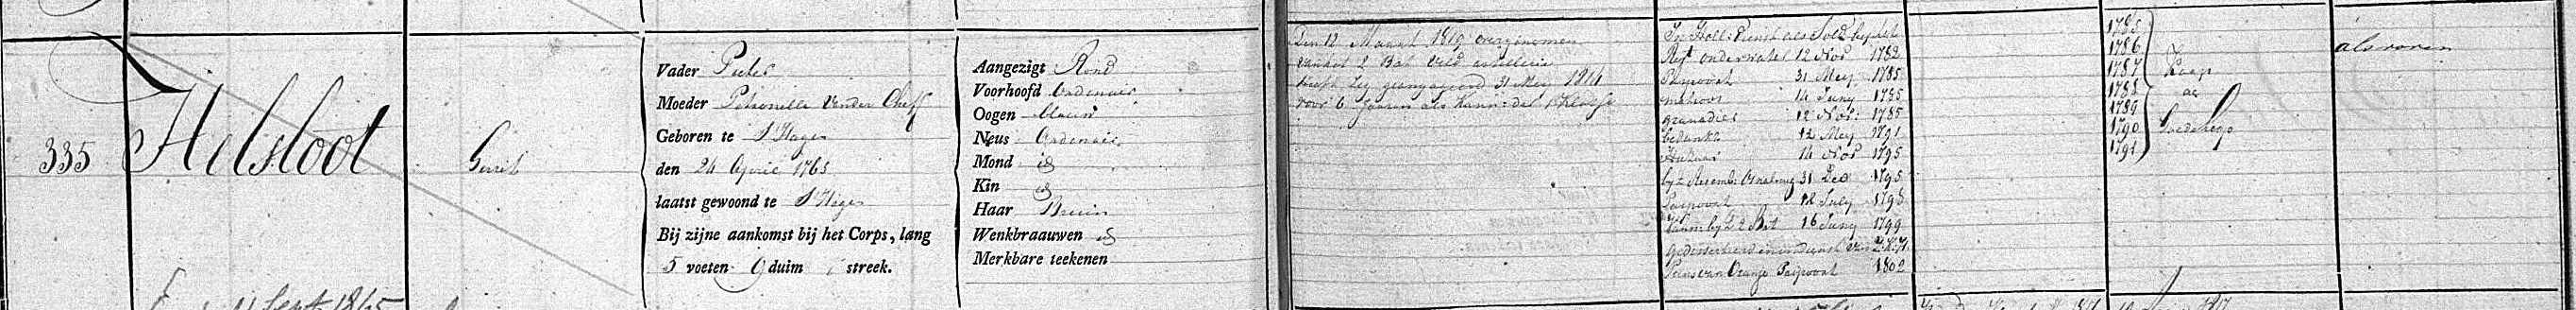 335
Helsloot
Gerrit
Vader Pieter
Moeder Petronella Vander Cheff
Geboren te S'Hagen
den 24 April 1765
laatst gewoond te S'Hagen
Bij zijne aankomst bij het Corps, lang
5 voeten 9 duim streek.
Aangezigt Rond
Voorhoofd Ordenair
Oogen blauw
Neus Ordenair
Mond id
Kin id
Haar Bruin
Wenkbraauwen id
Merkbare teekenen
Den 12 Maart 1819 overgenomen
van het 2 Bat veld artillerie
heeft zig geengageerd 31 Mey 1814
voor 6 Jaaren als Kann: der 1 Klasse
In Holl: Dienst als Sold by het
Regt onderwater 12 Nov 1782
Paspoort 31 Mey 1785
matroos 14 Juny 1785
granadier 12 Nov: 1785
bedankt 12 Mey 1791
Huzaar 14 Nov 1795
31 Dec 1795
Paspoort 12 July 1798
Kann: by 2 Bat 16 Juny 1799
Prins van Oranje Paspoort 1802
1785
1786
1787
1788
1789
1790
1791
Kaap
de
Goedehoop
als voren
Sept 1815